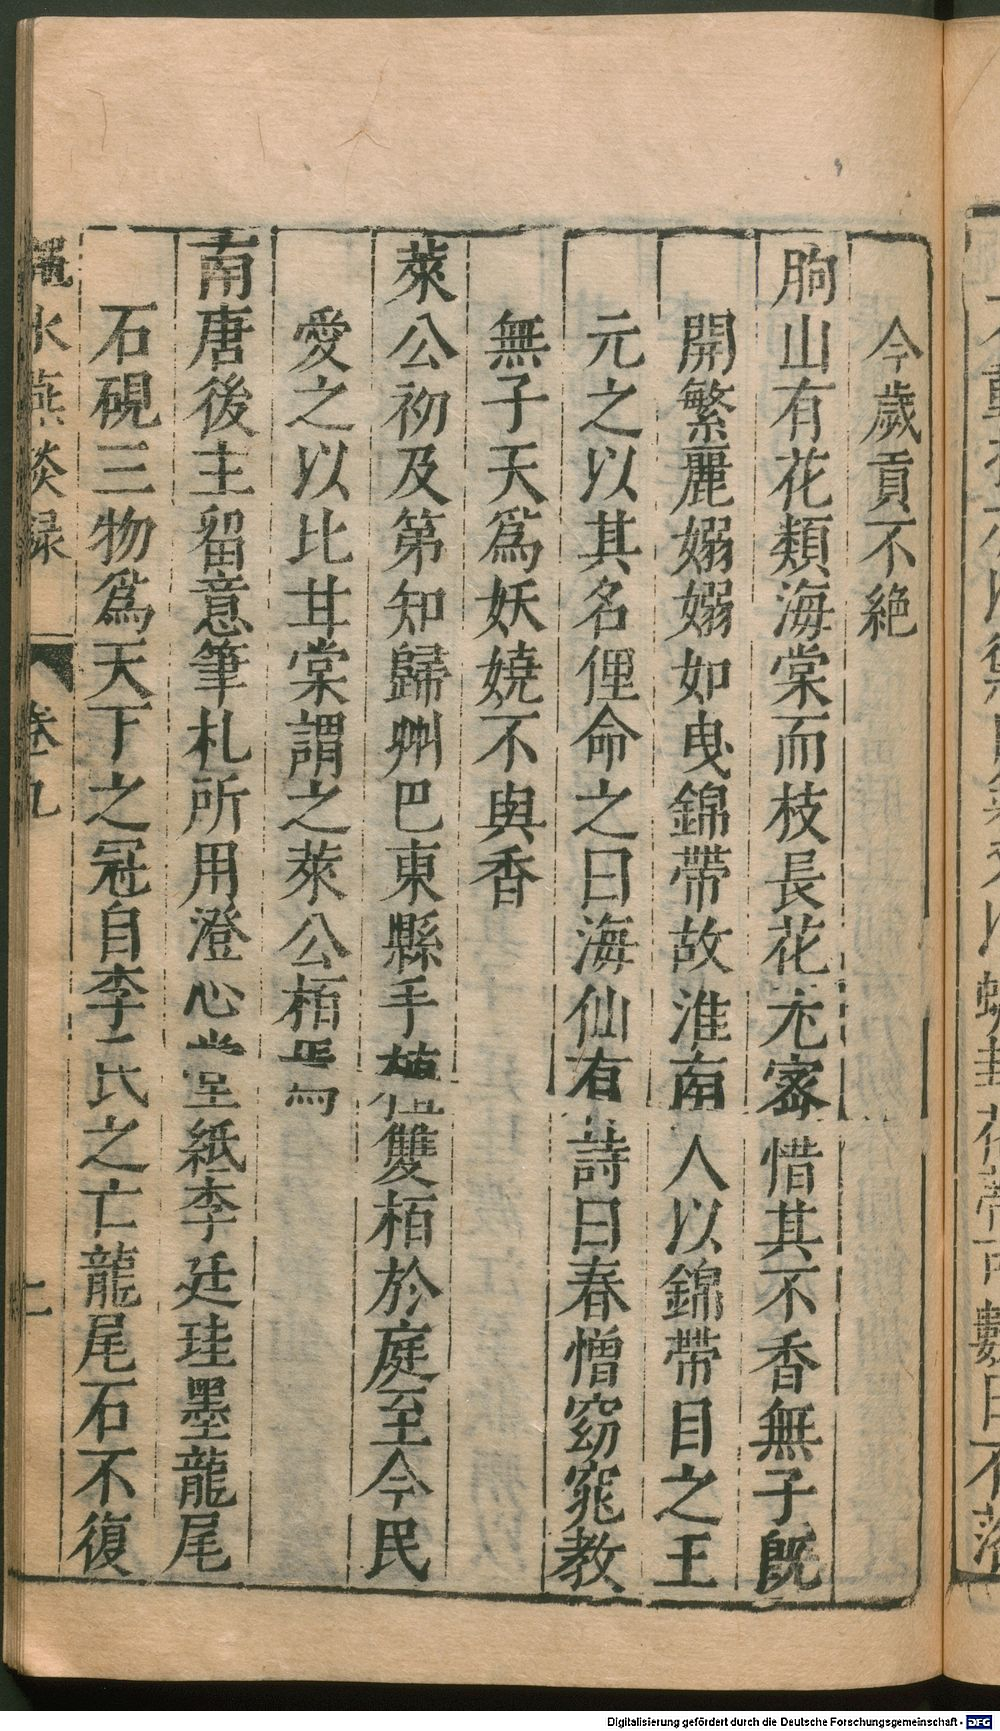 今歲貢不絶
朐山有花類海棠而枝長花尤密惜其不香無子旣
開繁麗嫋嫋如曳錦帶故淮南人以錦帶目之王
元之以其名俚命之曰海仙有詩曰春憎窈窕教
無子天爲妖嬈不與香
萊公初及第知歸州巴東縣手植雙栢於庭至今民
愛之以比甘棠謂之萊公栢焉
南唐後主留意筆札所用澄心堂紙李廷珪墨龍尾
石硯三物爲天下之冠自李氏之亡龍尾石不復
澠水燕談録 卷九 上
Digitalisierung gefördert durch die Deutsche Forschungsgemeinschaft - DFG